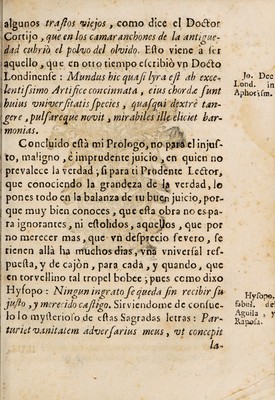 algunos trastos viejos, como dice el Doctor
Cortijo, que en los camaranchones de la antigue-
dad cubriò el polvo del olvido. Esto viene a ser
aquello, que en otro tiempo escribiò vn Docto
Londinense: Mundus hic quasi lyra est ab exce-
lentissimo Artifice concinnata, eius chordæ sunt
huius vniversitatis species, quasqui dextrè tan-
gere, pulsareque novit, mirabiles ille eliciet har-
monias.
Jo. Dee
Lond. in
Aphorism.
Concluido està mi Prologo, no para el injus-
to, maligno, è imprudente juicio, en quien no
prevalece la verdad; si para ti Prudente Lector,
que conociendo la grandeza de la verdad, lo
pones todo en la balanza de tu buen juicio, por-
que muy bien conoces, que esta obra no es pa-
ra ignorantes, ni estolidos, aquellos, que por
no merecer mas, que vn desprecio severo, se
tienen allà ha muchos dias, vna vniversal res-
puesta, y de cajòn, para cada, y quando, que
en torvellino tal tropel bobee; pues como dixo
Hysopo: Ningun ingrato se queda sin recibir su
justo, y merecido castigo. Sirviendome de consue-
lo lo mysterioso de estas Sagradas letras: Par-
turiet vanitatem adversarius meus, vt concepit
Hysopo.
fabul. de
Aguila, y
Raposa.
la-